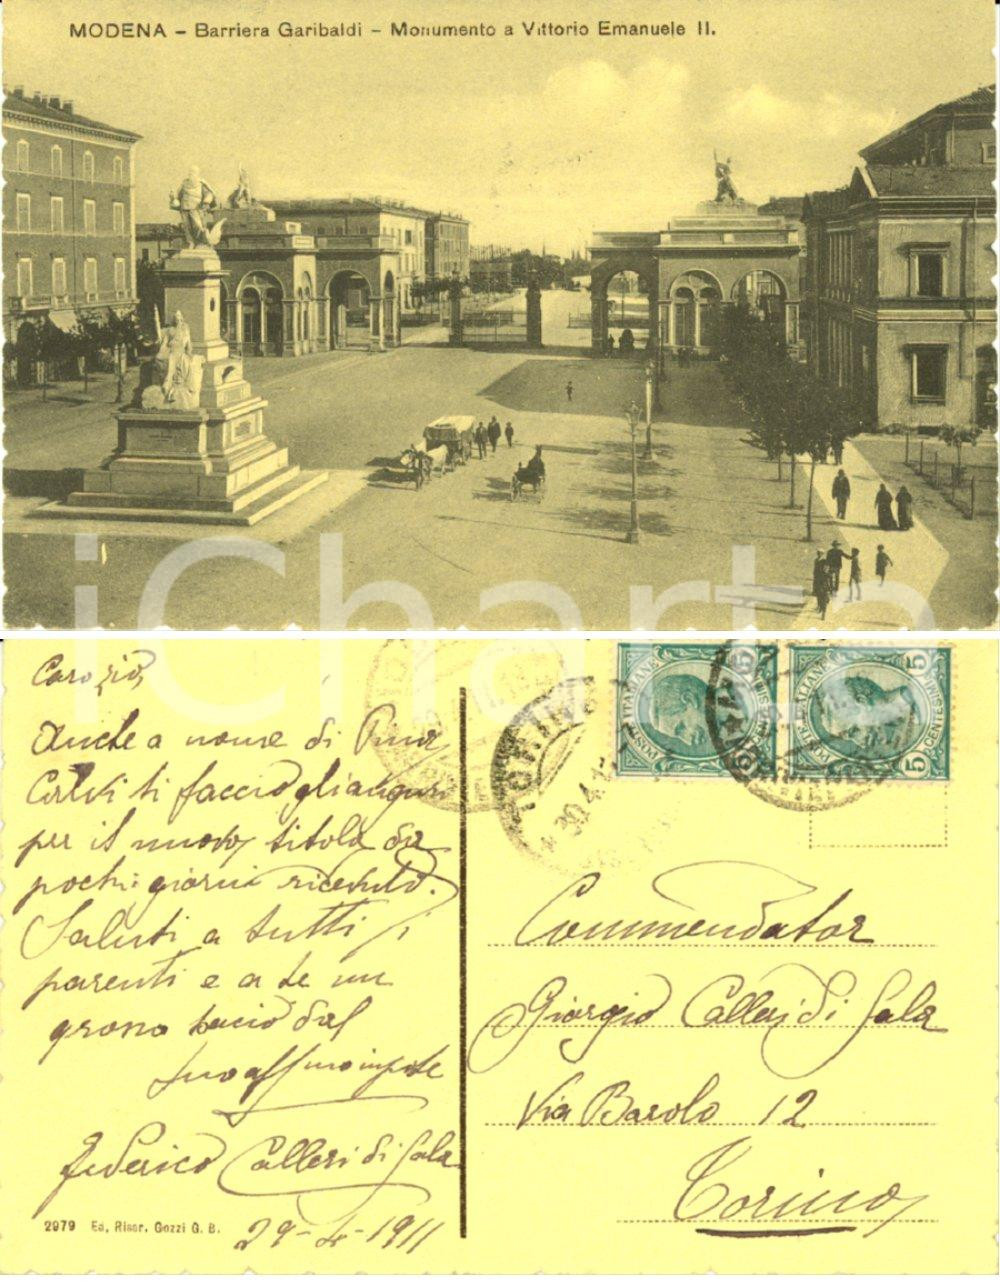 MODENA – Barriera Garibaldi – Monumento a Vittorio Emanuele II.
iCharta
Caro zio,
Anche a nome di Pina
Calvi ti faccio gli auguri
per il nuovo titolo da
pochi giorni ricevuto.
Saluti a tutti i
parenti e a te un
grosso bacio dal
tuo aff.mo nipote
Federico Calleri di Sala
29-4-1911
2979 Ed. Riser. Gozzi G. B.
POSTE ITALIANE
CENTESIMI
5
5
POSTE ITALIANE
CENTESIMI
5
5
TORINO
30.4.1
Commendator
Giorgio Calleri di Sala
Via Barolo 12
Torino